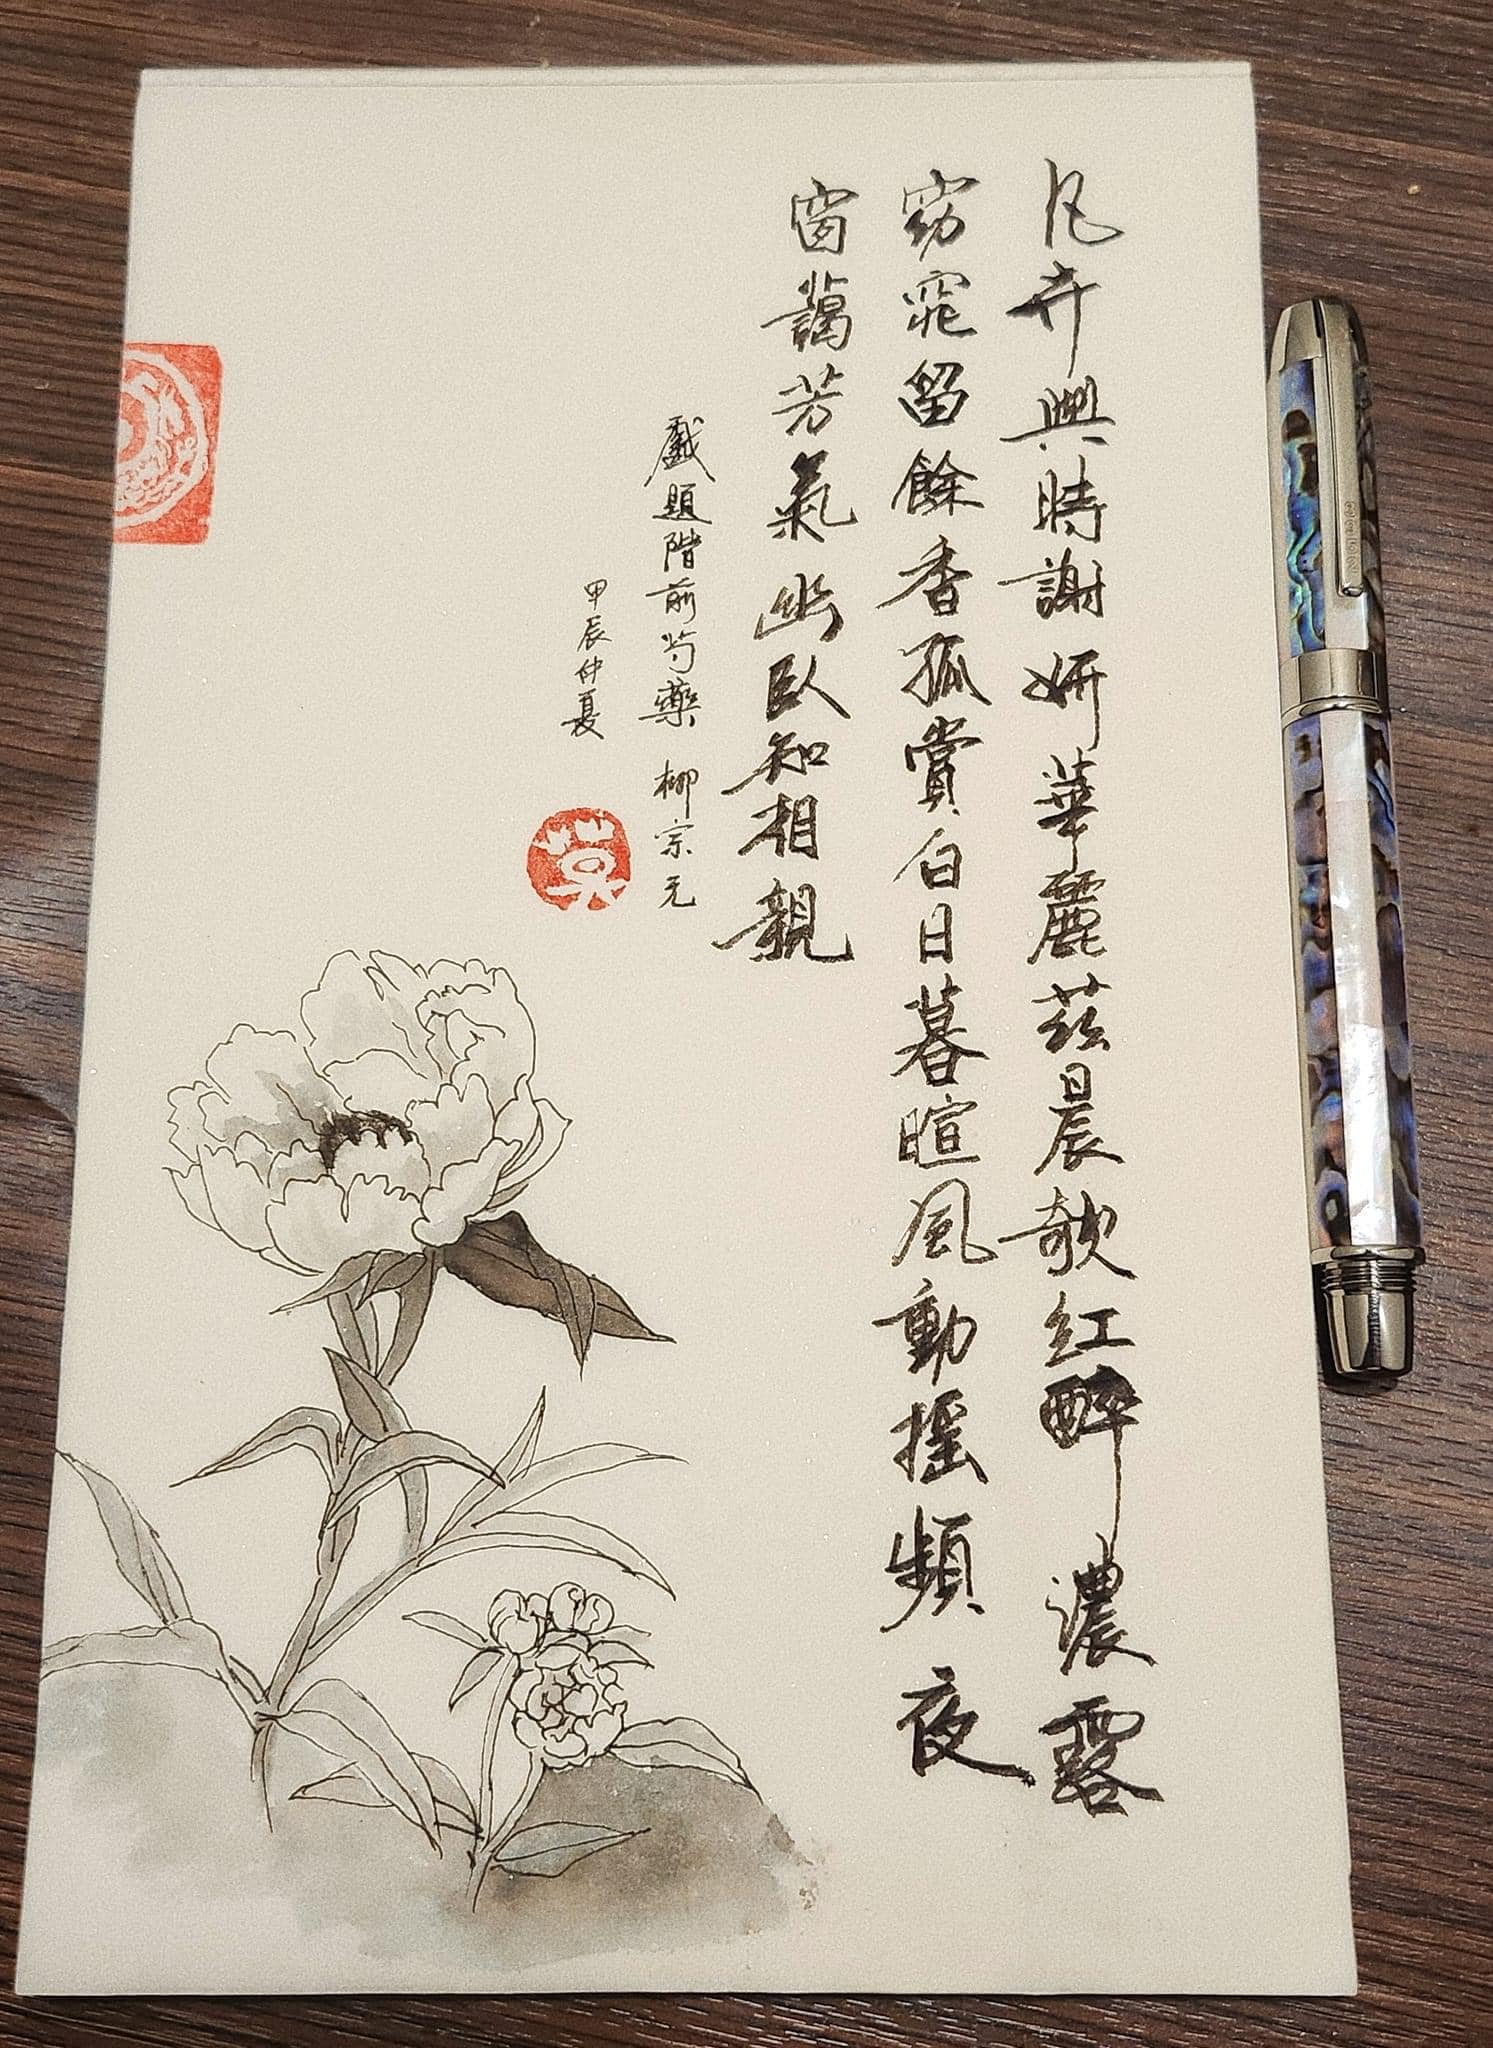 凡卉與時謝妍華麗茲晨欹紅醉濃露
窈窕留餘香孤賞白日暮暄風動搖頻夜
窗藹芳氣幽臥知相親
戲題階前芍藥 柳宗元
甲辰仲夏